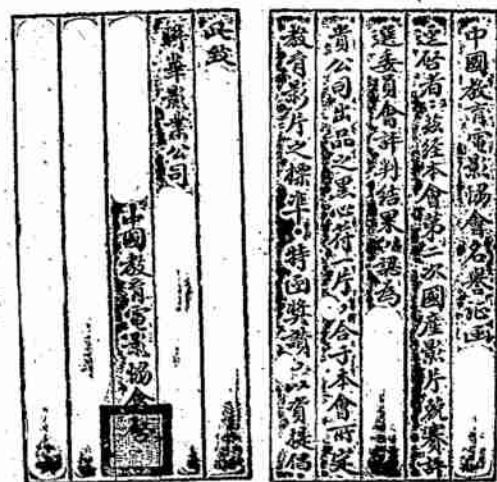 中國教育電影協會名譽証函
逕啓者茲經本會第二次國產影片競賽評
選委員會評判結果認為
貴公司出品之黑心符一片合于本會所定
教育影片之標準特函獎贊以資提倡
此致
聯華影業公司
中國教育電影協會